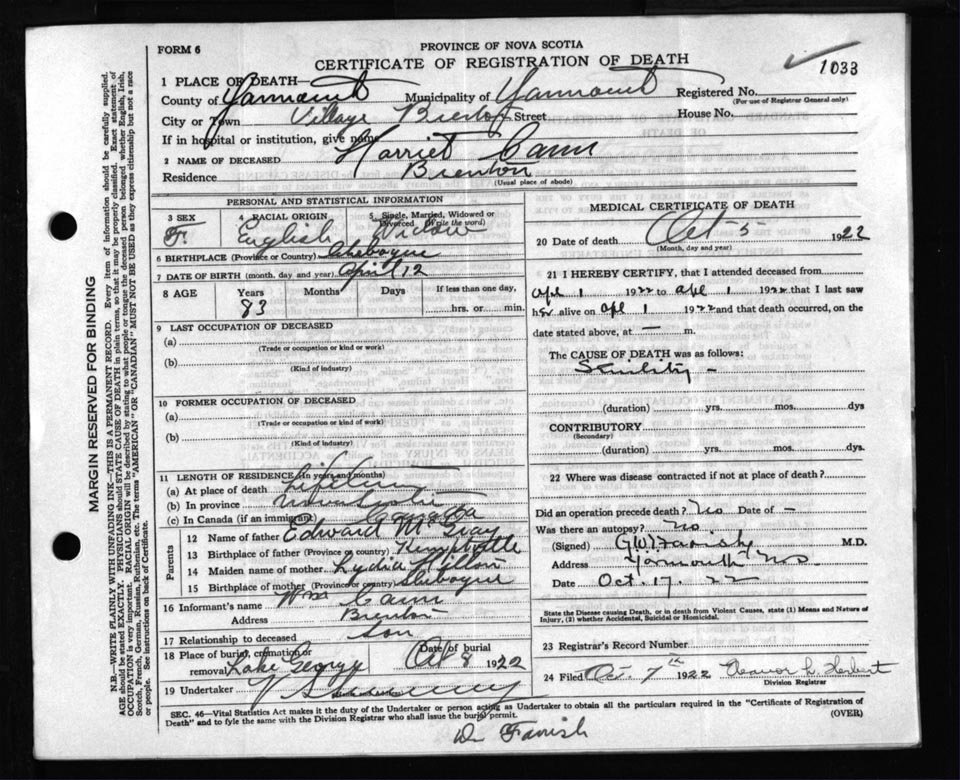 FORM 6
PROVINCE OF NOVA SCOTIA
CERTIFICATE OF REGISTRATION OF DEATH
1033
1 PLACE OF DEATH—
County of Yarmouth Municipality of Yarmouth Registered No.
(For use of Registrar General only)
City or Town Village Brenton Street House No.
If in hospital or institution, give name
2 NAME OF DECEASED Harriet Cann
Residence Brenton
(Usual place of abode)
PERSONAL AND STATISTICAL INFORMATION
3 SEX 4 RACIAL ORIGIN 5 Single, Married, Widowed or Divorced (Write the word)
F. English Widow
6 BIRTHPLACE (Province or Country) Chebogue
7 DATE OF BIRTH (month, day and year) April 12
8 AGE Years Months Days If less than one day,
83 hrs. or min.
9 LAST OCCUPATION OF DECEASED
(a)
(Trade or occupation or kind or work)
(b)
(Kind of industry)
10 FORMER OCCUPATION OF DECEASED
(a)
(Trade or occupation or kind of work)
(b)
(Kind of industry)
11 LENGTH OF RESIDENCE (in years and months)
(a) At place of death Lifetime
(b) In province Nova Scotia
(c) In Canada (if an immigrant) Canada
Parents
12 Name of father Edward M. Gray
13 Birthplace of father (Province or country) Kemptville
14 Maiden name of mother Lydia
15 Birthplace of mother (Province or country) Chebogue
16 Informant's name Wm Cann
Address Brenton
17 Relationship to deceased Son
18 Place of burial, cremation or removal Lake George Date of burial Oct 8 1922
19 Undertaker
MEDICAL CERTIFICATE OF DEATH
20 Date of death Oct 5 1922
(Month, day and year)
21 I HEREBY CERTIFY, that I attended deceased from
Apl 1 1922 to Apl 1 1922 that I last saw
her alive on Apl 1 1922 and that death occurred, on the
date stated above, at — m.
The CAUSE OF DEATH was as follows:
Senility –
(duration) yrs. mos. dys
CONTRIBUTORY
(Secondary)
(duration) yrs. mos. dys.
22 Where was disease contracted if not at place of death?
Did an operation precede death? No Date of –
Was there an autopsy? No
(Signed) G.W.T. Farish M.D.
Address Yarmouth N.S.
Date Oct. 17. 22
State the Disease causing Death, or in death from Violent Causes, state (1) Means and Nature of
Injury, (2) whether Accidental, Suicidal or Homicidal.
23 Registrar's Record Number
24 Filed Oct 7th 1922 Eleanor L. Herbert
Division Registrar
SEC. 46—Vital Statistics Act makes it the duty of the Undertaker or person acting as Undertaker to obtain all the particulars required in the "Certificate of Registration of
Death" and to fyle the same with the Division Registrar who shall issue the burial permit. (OVER)
Dr Farish
MARGIN RESERVED FOR BINDING
N.B.—WRITE PLAINLY WITH UNFADING INK—THIS IS A PERMANENT RECORD. Every item of information should be carefully supplied.
AGE should be stated EXACTLY. PHYSICIANS should STATE CAUSE OF DEATH in plain terms, so that it may be properly classified. Exact statement of
OCCUPATION is very important. RACIAL ORIGIN will be described by stating to what people or tongue the deceased person belonged whether English, Irish,
Scotch, French, German, Russian, Ruthenian, etc. The terms "AMERICAN" OR "CANADIAN" MUST NOT BE USED as they express citizenship but not a race
or people. See instructions on back of Certificate.